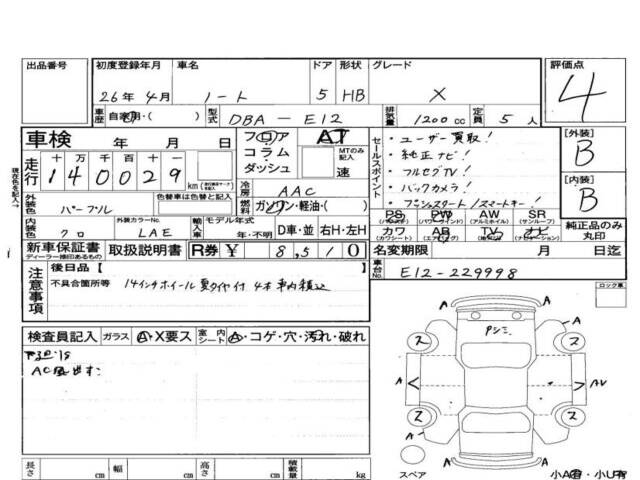 出品番号 初度登録年月 車名 ドア 形状 グレード 評価点
26年 4月 ノート 5 HB X 4
車歴 自家用・( ) 型式 DBA-E12 排気量 1200cc 定員 5人
車検 年 月 日 フロア コラム ダッシュ AT MTのみ記入 速
セールスポイント
・ユーザー買取!
・純正ナビ!
・フルセグTV!
・バックカメラ!
・プッシュスタート/スマートキー!
[外装] B
[内装] B
現在色を記入→
走行 十 万 千 百 十 一
140029 km
冷房 AAC
外装色 パープル 色替車は色替と記入 燃料 ガソリン・軽油・( )
PS (パワステ) PW (パワーウインド) AW (アルミホイル) SR (サンルーフ)
カワ (カワシート) AB (エアバッグ) TV ナビ
純正品のみ丸印
内装色 クロ 外装カラーNo. LAE 輸入車 モデル年式 年・不明 D車・並 右H・左H
新車保証書 ディーラー捺印あるもの 取扱説明書 R券 ¥ 8,510 名変期限 月 日迄
注意事項 後日品[ ] 車台No. E12-229998
不具合箇所等 14インチホイール夏タイヤ付4本車内積込
ロック車
検査員記入 ガラス A・X要ス 室内シート A・コゲ・穴・汚れ・破れ
A A A AU A A A
ス ス ス ス
スペア
長さ cm 幅 cm 高さ cm 積載量 kg
小A有・小U有